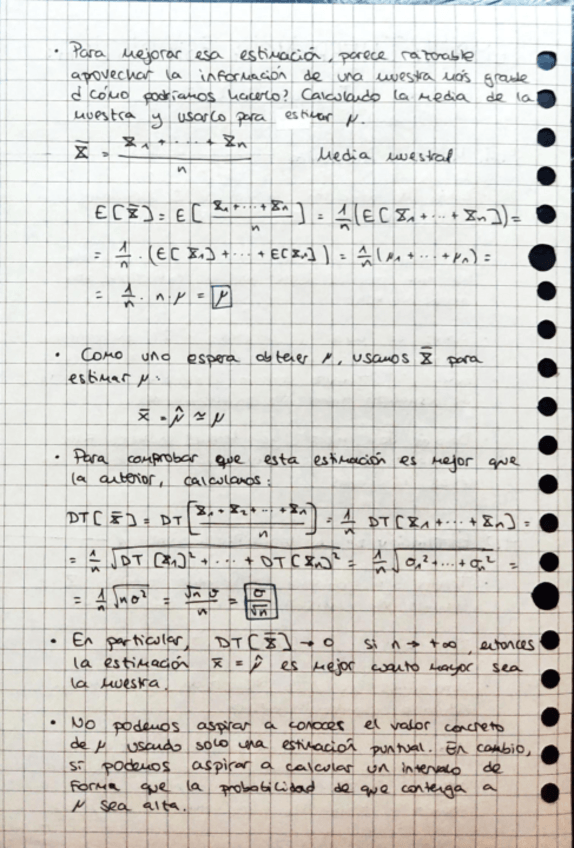 · Para mejorar esa estimación, parece razonable
aprovechar la información de una muestra más grande
¿cómo podríamos hacerlo? Calculando la media de la
muestra y usarlo para estimar μ.
X̄ = (X₁ + ··· + Xₙ)/n    Media muestral
E[X̄] = E[(X₁ + ··· + Xₙ)/n] = 1/n (E[X₁ + ··· + Xₙ]) =
= 1/n · (E[X₁] + ··· + E[Xₙ]) = 1/n (μ₁ + ··· + μₙ) =
= 1/n · n · μ = μ
· Como uno espera obtener μ, usamos X̄ para
estimar μ:
x̄ = μ̂ ≃ μ
· Para comprobar que esta estimación es mejor que
la anterior, calculamos:
DT[X̄] = DT[(X₁ + X₂ + ··· + Xₙ)/n] = 1/n DT[X₁ + ··· + Xₙ] =
= 1/n √(DT[X₁]² + ··· + DT[Xₙ]²) = 1/n √(σ₁² + ··· + σₙ²) =
= 1/n √(nσ²) = √n σ/n = σ/√n
· En particular, DT[X̄] → 0 si n → +∞, entonces
la estimación x̄ = μ̂ es mejor cuanto mayor sea
la muestra.
· No podemos aspirar a conocer el valor concreto
de μ usando solo una estimación puntual. En cambio,
sí podemos aspirar a calcular un intervalo de
forma que la probabilidad de que contenga a
μ sea alta.